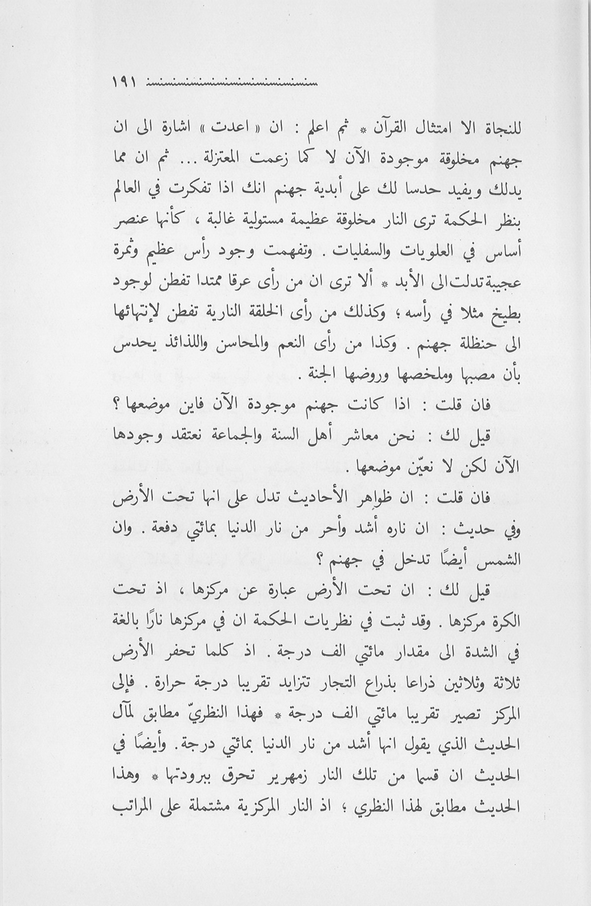 ١٩١
للنجاة الا امتثال القرآن * ثم اعلم : ان « اعدت » اشارة الى ان
جهنم مخلوقة موجودة الآن لا كما زعمت المعتزلة ... ثم ان مما
يدلك ويفيد حدسا لك على أبدية جهنم انك اذا تفكرت في العالم
بنظر الحكمة ترى النار مخلوقة عظيمة مستولية غالبة ، كأنها عنصر
أساس في العلويات والسفليات . وتفهمت وجود رأس عظيم وثمرة
عجيبة تدلت الى الأبد * ألا ترى ان من رأى عرقا ممتدا تفطن لوجود
بطيخ مثلا في رأسه ؛ وكذلك من رأى الخلقة النارية تفطن لإنتهائها
الى حنظلة جهنم . وكذا من رأى النعم والمحاسن واللذائذ يحدس
بأن مصبها وملخصها وروضها الجنة .
فان قلت : اذا كانت جهنم موجودة الآن فاين موضعها ؟
قيل لك : نحن معاشر أهل السنة والجماعة نعتقد وجودها
الآن لكن لا نعيّن موضعها .
فان قلت : ان ظواهر الأحاديث تدل على انها تحت الأرض
وفي حديث : ان ناره أشد وأحر من نار الدنيا بمائتي دفعة . وان
الشمس أيضًا تدخل في جهنم ؟
قيل لك : ان تحت الأرض عبارة عن مركزها ، اذ تحت
الكرة مركزها . وقد ثبت في نظريات الحكمة ان في مركزها نارًا بالغة
في الشدة الى مقدار مائتي الف درجة . اذ كلما تحفر الأرض
ثلاثة وثلاثين ذراعا بذراع التجار تتزايد تقريبا درجة حرارة . فإلى
المركز تصير تقريبا مائتي الف درجة * فهذا النظريّ مطابق لمآل
الحديث الذي يقول انها أشد من نار الدنيا بمائتي درجة . وأيضًا في
الحديث ان قسما من تلك النار زمهرير تحرق ببرودتها * وهذا
الحديث مطابق لهذا النظري ؛ اذ النار المركزية مشتملة على المراتب